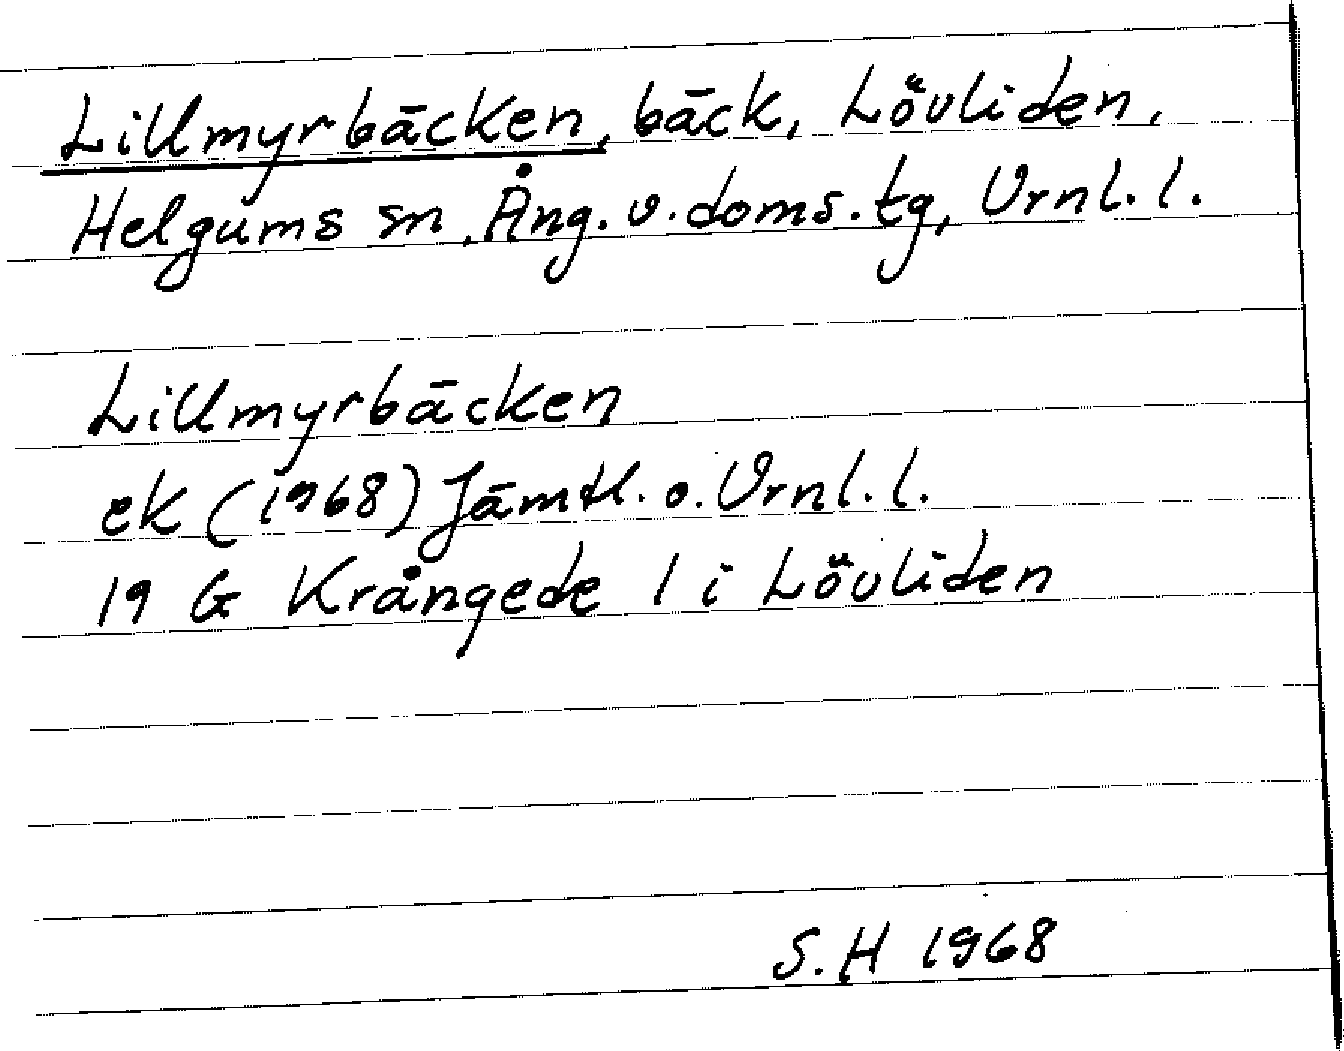 Lillmyrbäcken, bäck, Lövliden,
Helgums sn, Ång. v. doms. tg, Vrnl. l.
Lillmyrbäcken
ek (1968) Jämtl. o. Vrnl. l.
19 G Krångede 1 i Lövliden
S. H 1968